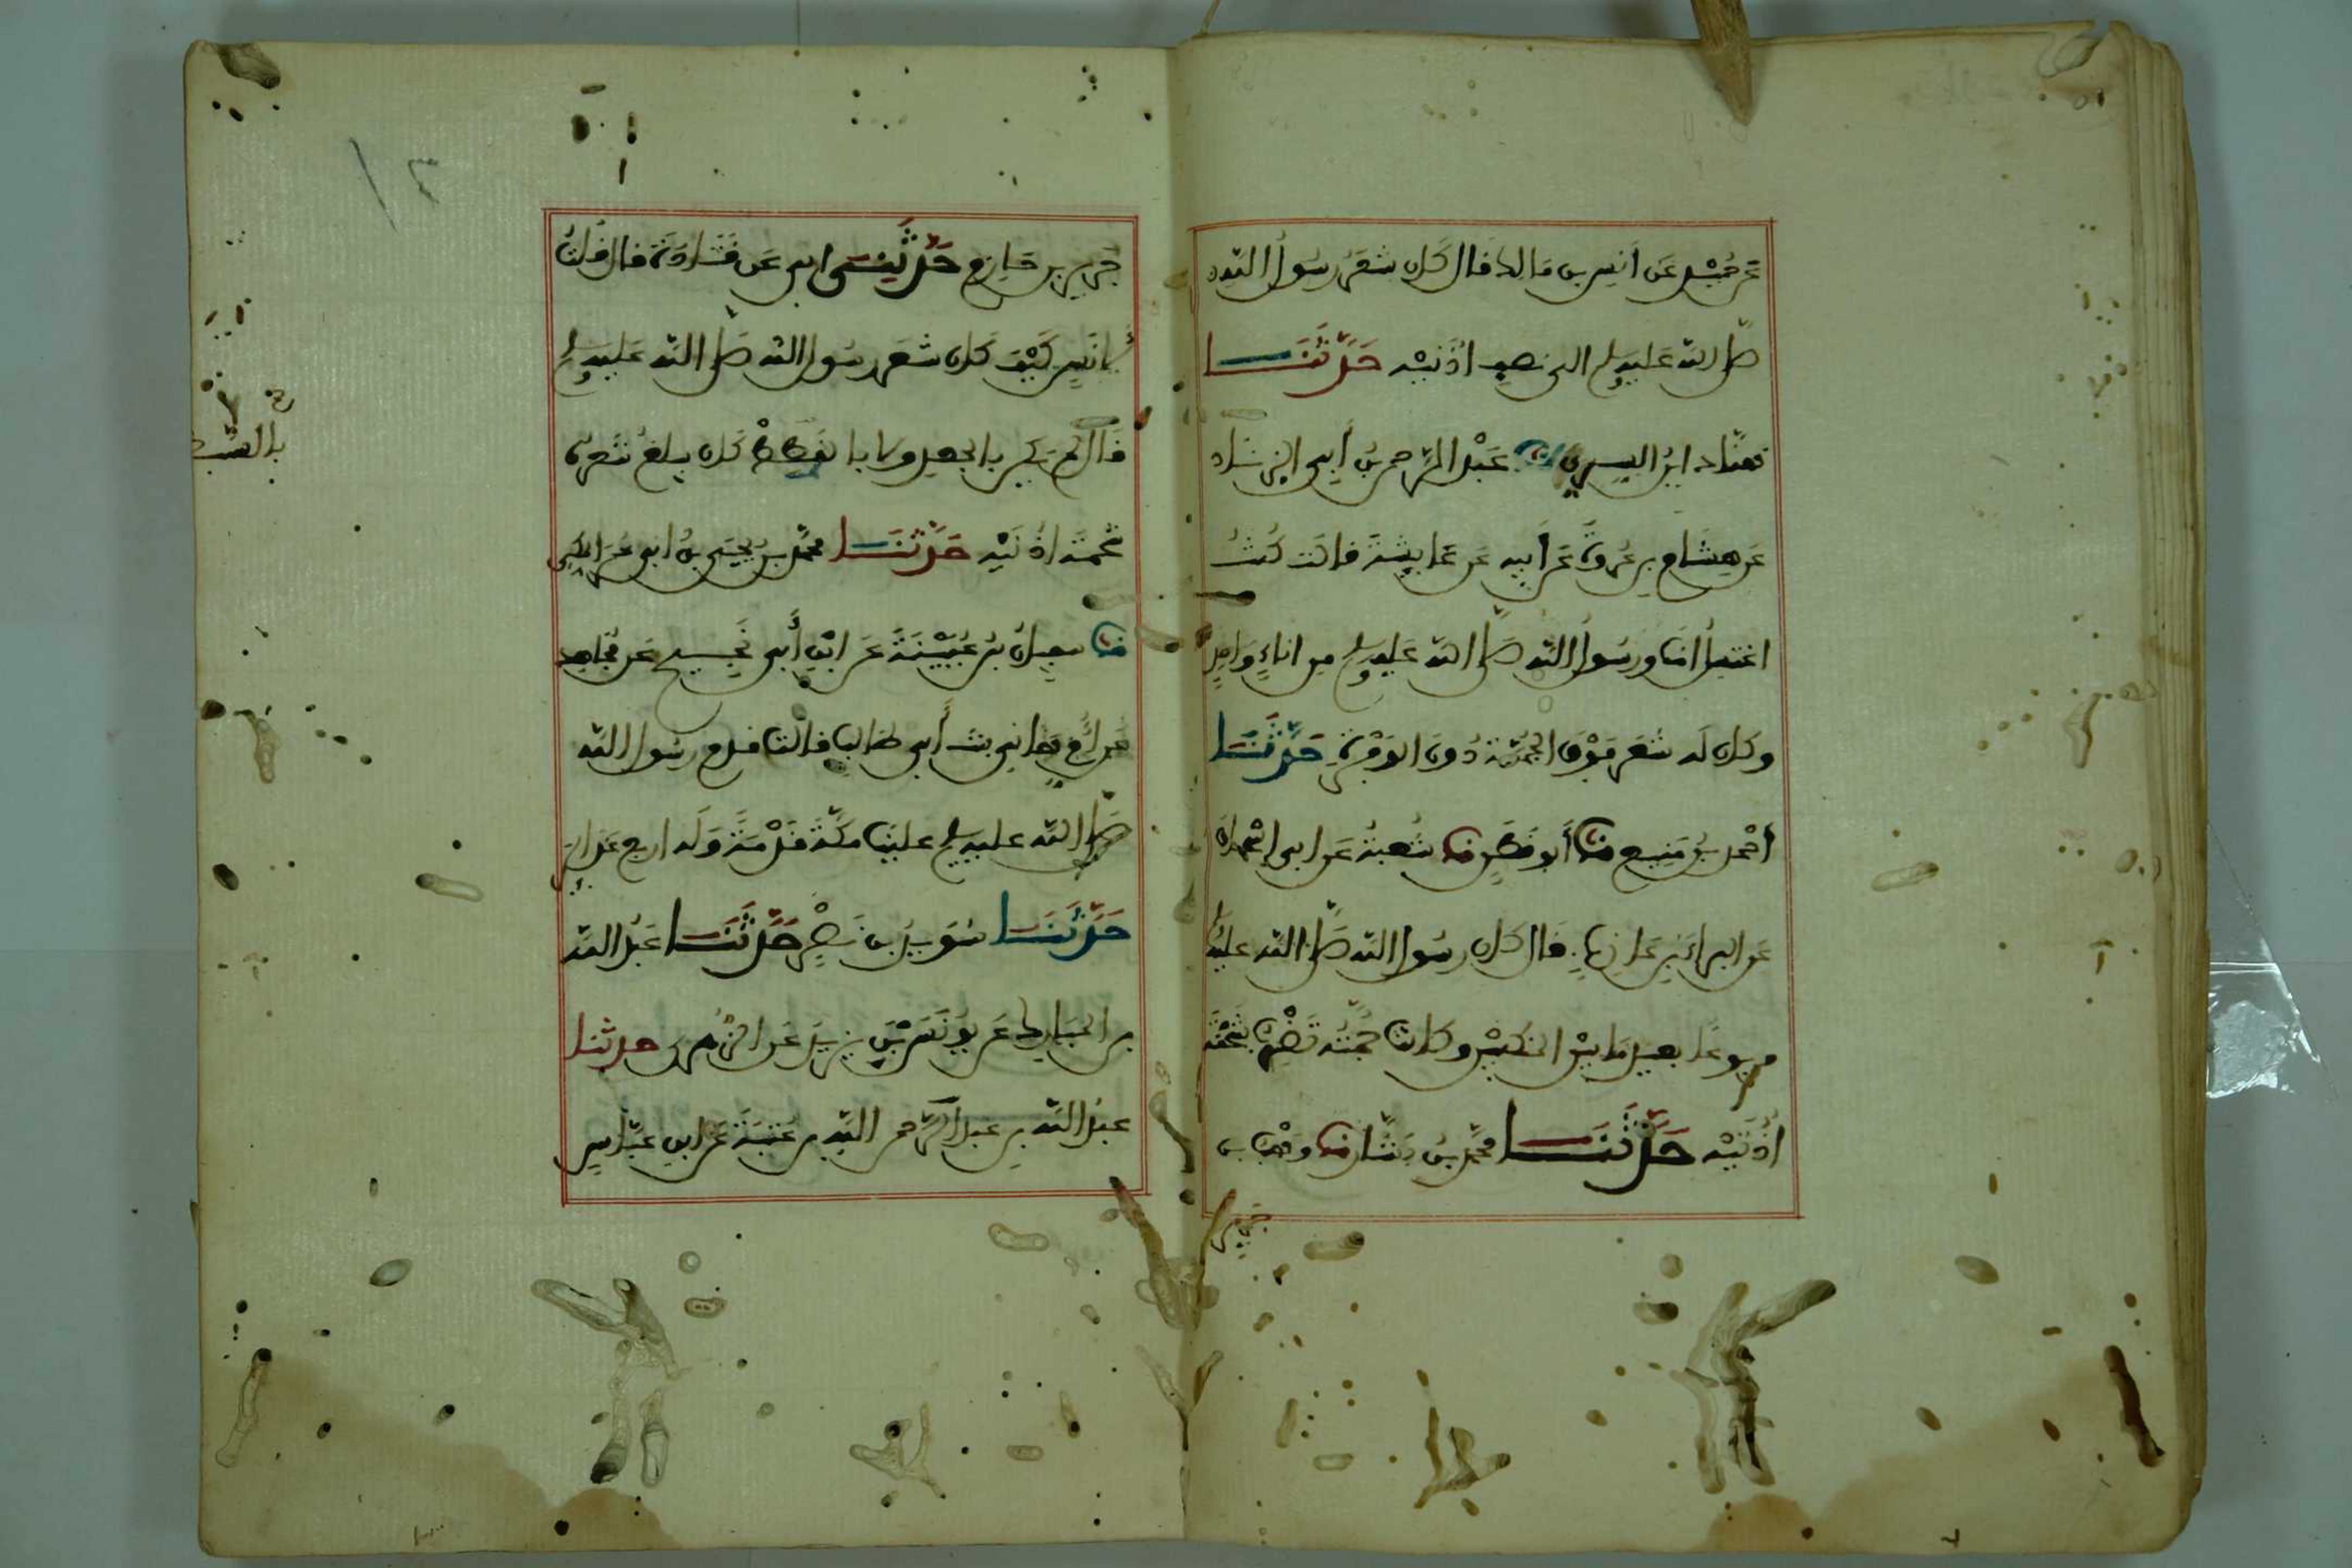 عَن حُمَيْدٍ عَن أَنَسِ بن مَالِكٍ قَالَ كَانَ شَعَرُ رَسُولِ اللّه
صَلَّى اللّه عَلَيهِ وسلم الى نصفِ اُذُنَيْهِ حَدَّثَنَا
هنَّاد ابْنُ السرِيِّ نا عَبْدُ الرَّحمن بنُ أَبِي الزناد
عَن هِشَامِ بنِ عُروَةَ عَن أَبِيهِ عَن عَايِشَةَ قَالَت كُنتُ
اغتسِلُ انَا ورَسُولُ اللّه صَلَّى اللّه عَلَيهِ وسلم مِن اناءٍ وَاحِدٍ
وكَان لَه شَعَر فَوْقَ الجُمَّةِ دُونَ الوَفْرَةِ حَدَّثَنَا
أَحْمد بنُ مَنِيع نا أَبُو قَطَنٍ نا شُعبَةُ عَن ابى اسْحاق
عَن البراءِ بنِ عَازِبٍ قَالَ كَان رسُول اللّه صَلَّى اللّه عليه
مربوعًا بعيد مَا بَيْن المنكبَيْنِ وكَانَت جُمَّتُه تَضْرِبُ شَحْمَةَ
اُذُنَيْهِ حَدَّثَنَا محمَّد بنُ بَشَّار نا وَهْبُ بن
جَرير
جَرِير بن حَازِم حَدَّثَنِى ابِى عَن قَتَادَةَ قال قُلتُ
لانَسٍ كَيْفَ كَانَ شَعَر رسُولِ اللّه صَلَّى اللّه عَلَيهِ وسلم
قَالَ لم يَكُن بالجعدِ ولا بالقطط كَان يبلغُ شَعَرُه
شحمَة اُذُنَيْهِ حَدَّثَنَا محمَّد بنُ يَحْيَى بنُ ابى عُمَر المكى
نا سفين بنُ عُيَيْنَةَ عَن ابْنِ أَبي نَجِيحٍ عَن مُجاهدٍ
عَن أُمِّ هَانِي بنتِ أَبِي طَالبٍ قَالت قدم رسُول اللّه
صَلَّى اللّه عليه وسلم علَينَا مكَّةَ قَدْمَةً وَلَه اربع غدايِر
حَدَّثَنَا سُوَيد بن نَصْرٍ حَدَّثَنَا عَبْدُ اللّه
بن المبَارك عَن يونُسَ بْنِ يزِيدَ عَن الزُّهرى حدثنا
عبدُ اللّه بن عبد الرَّحمن اللّه بن عُتبَةَ عَن ابنِ عبَّاسٍ